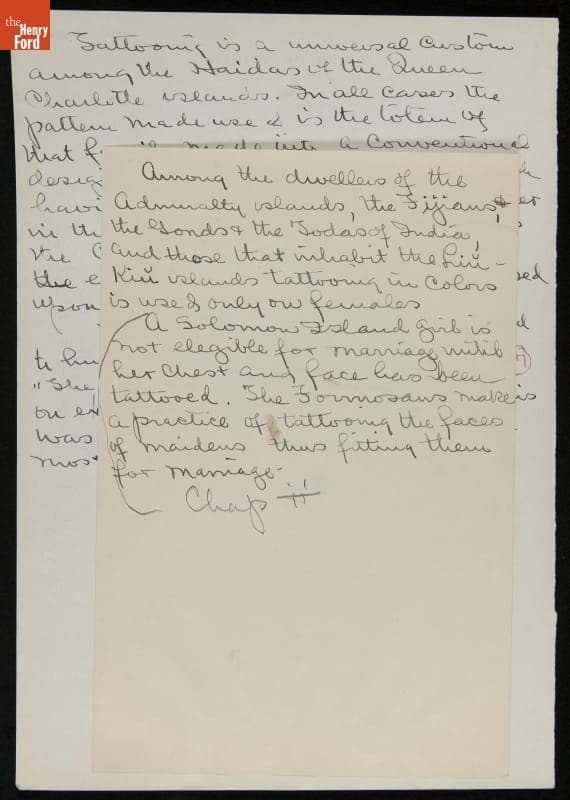 the
Henry
Ford
Tattooing is a universal custom
among the Haidas of the Queen
Charlotte islands. In all cases the
pattern made use of is the totem of
that made into a Conventional
desig
havi
in th
the
the e
upon
to hu
"She
on e
was
mos
Among the dwellers of the
Admiralty islands, the Fijians, &
the Gonds & the Todas of India,
and those that inhabit the Liu-
Kiu islands tattooing in colors
is used only on females
A Solomon Island girl is
not elegible for marriage until
her chest and face has been
tattooed. The Formosans make
a practice of tattooing the faces
of maidens thus fitting them
for marriage-
Chap II